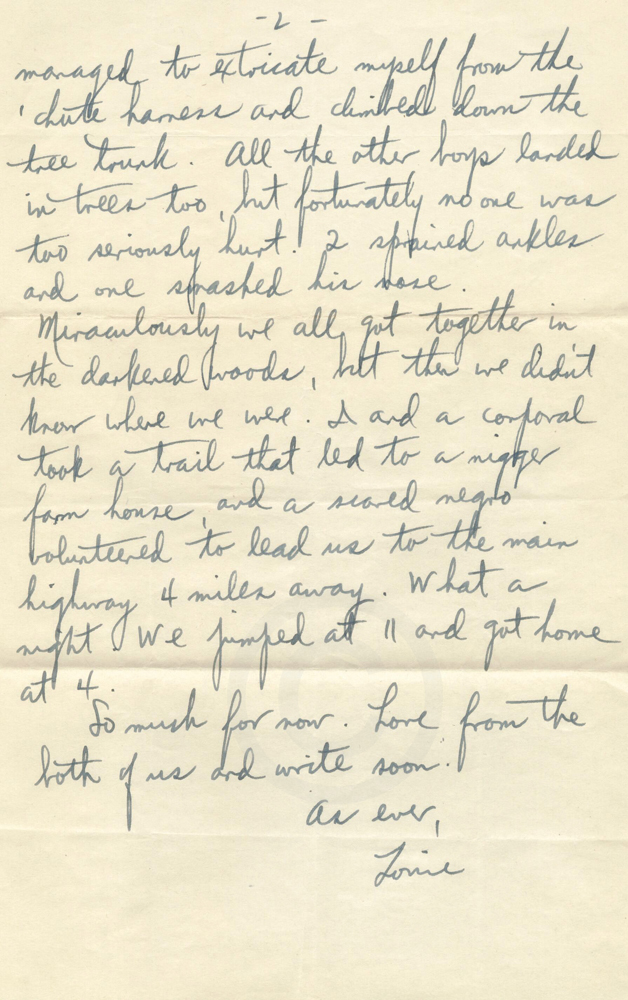 - 2 -
managed to extricate myself from the
'chute harness and climbed down the
tree trunk. All the other boys landed
in trees too, but fortunately no one was
too seriously hurt. 2 sprained ankles
and one smashed his nose.
Miraculously we all got together in
the darkened woods, but then we didn't
know where we were. I and a corporal
took a trail that led to a nigger
farm house, and a scared negro
volunteered to lead us to the main
highway 4 miles away. What a
night. We jumped at 11 and got home
at 4.
So much for now. Love from the
both of us and write soon.
As ever,
Louie